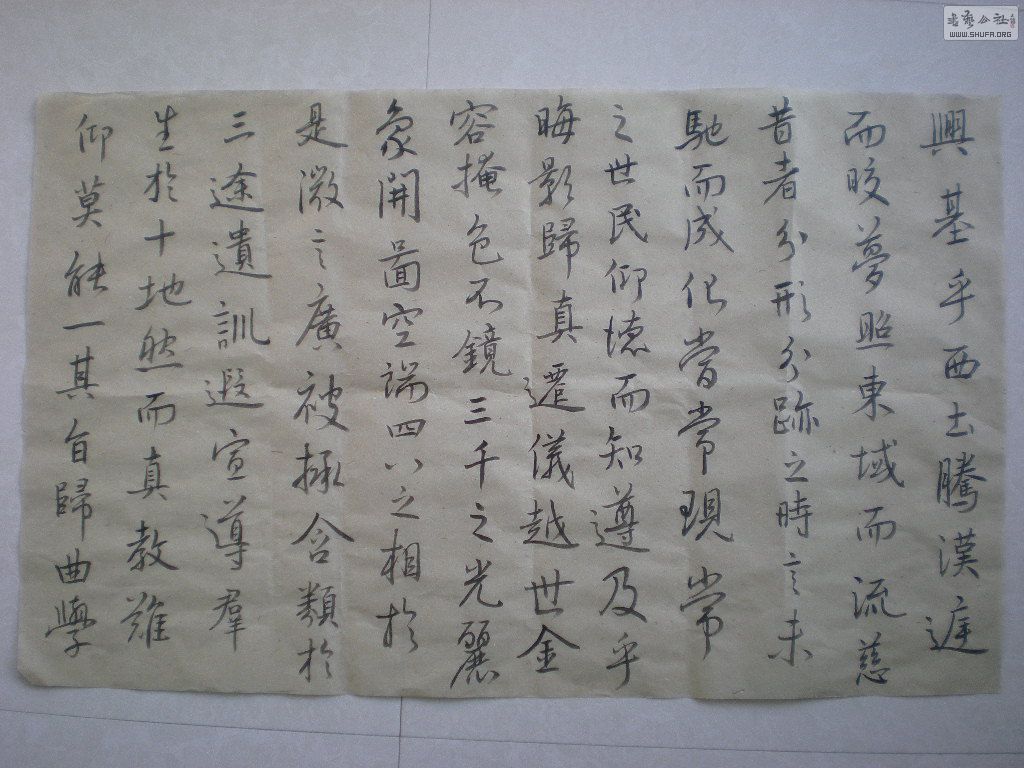 興基乎西土騰漢庭
而皎夢照東域而流慈
昔者分形分跡之時言未
馳而成化當常現常
之世民仰德而知遵及乎
晦影歸真遷儀越世金
容掩色不鏡三千之光麗
象開圖空端四八之相於
是微言廣被拯含類於
三途遺訓遐宣導羣
生於十地然而真教難
仰莫能一其旨歸曲學
書藝公社
WWW.SHUFA.ORG